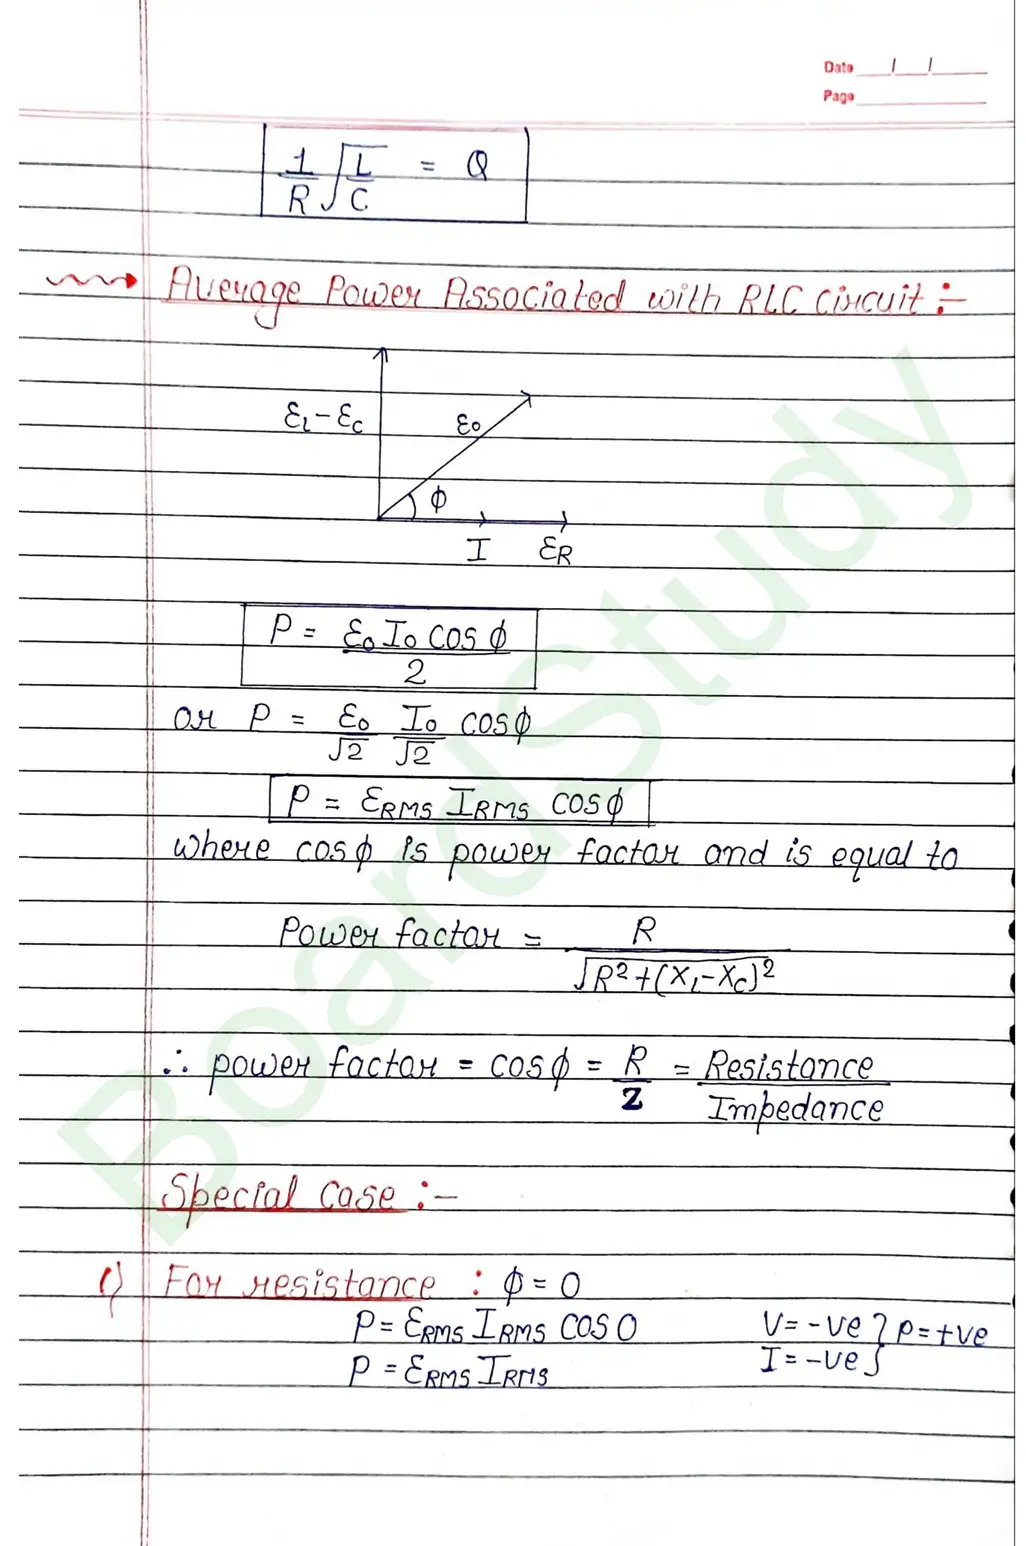 Date __/__/__
Page ______
1/R √(L/C) = Q
Average Power Associated with RLC circuit :-
εL - εC
ε0
φ
I εR
P = ε0 I0 cos φ / 2
or P = ε0/√2 I0/√2 cosφ
P = εRMS IRMS cosφ
where cosφ is power factor and is equal to
Power factor = R / √(R²+(XL-XC)²
∴ power factor = cosφ = R/Z = Resistance/Impedance
Special case :-
1) For resistance : φ = 0
P = εRMS IRMS COS 0 V = -ve } P = +ve
P = εRMS IRMS I = -ve }
BoardStudy